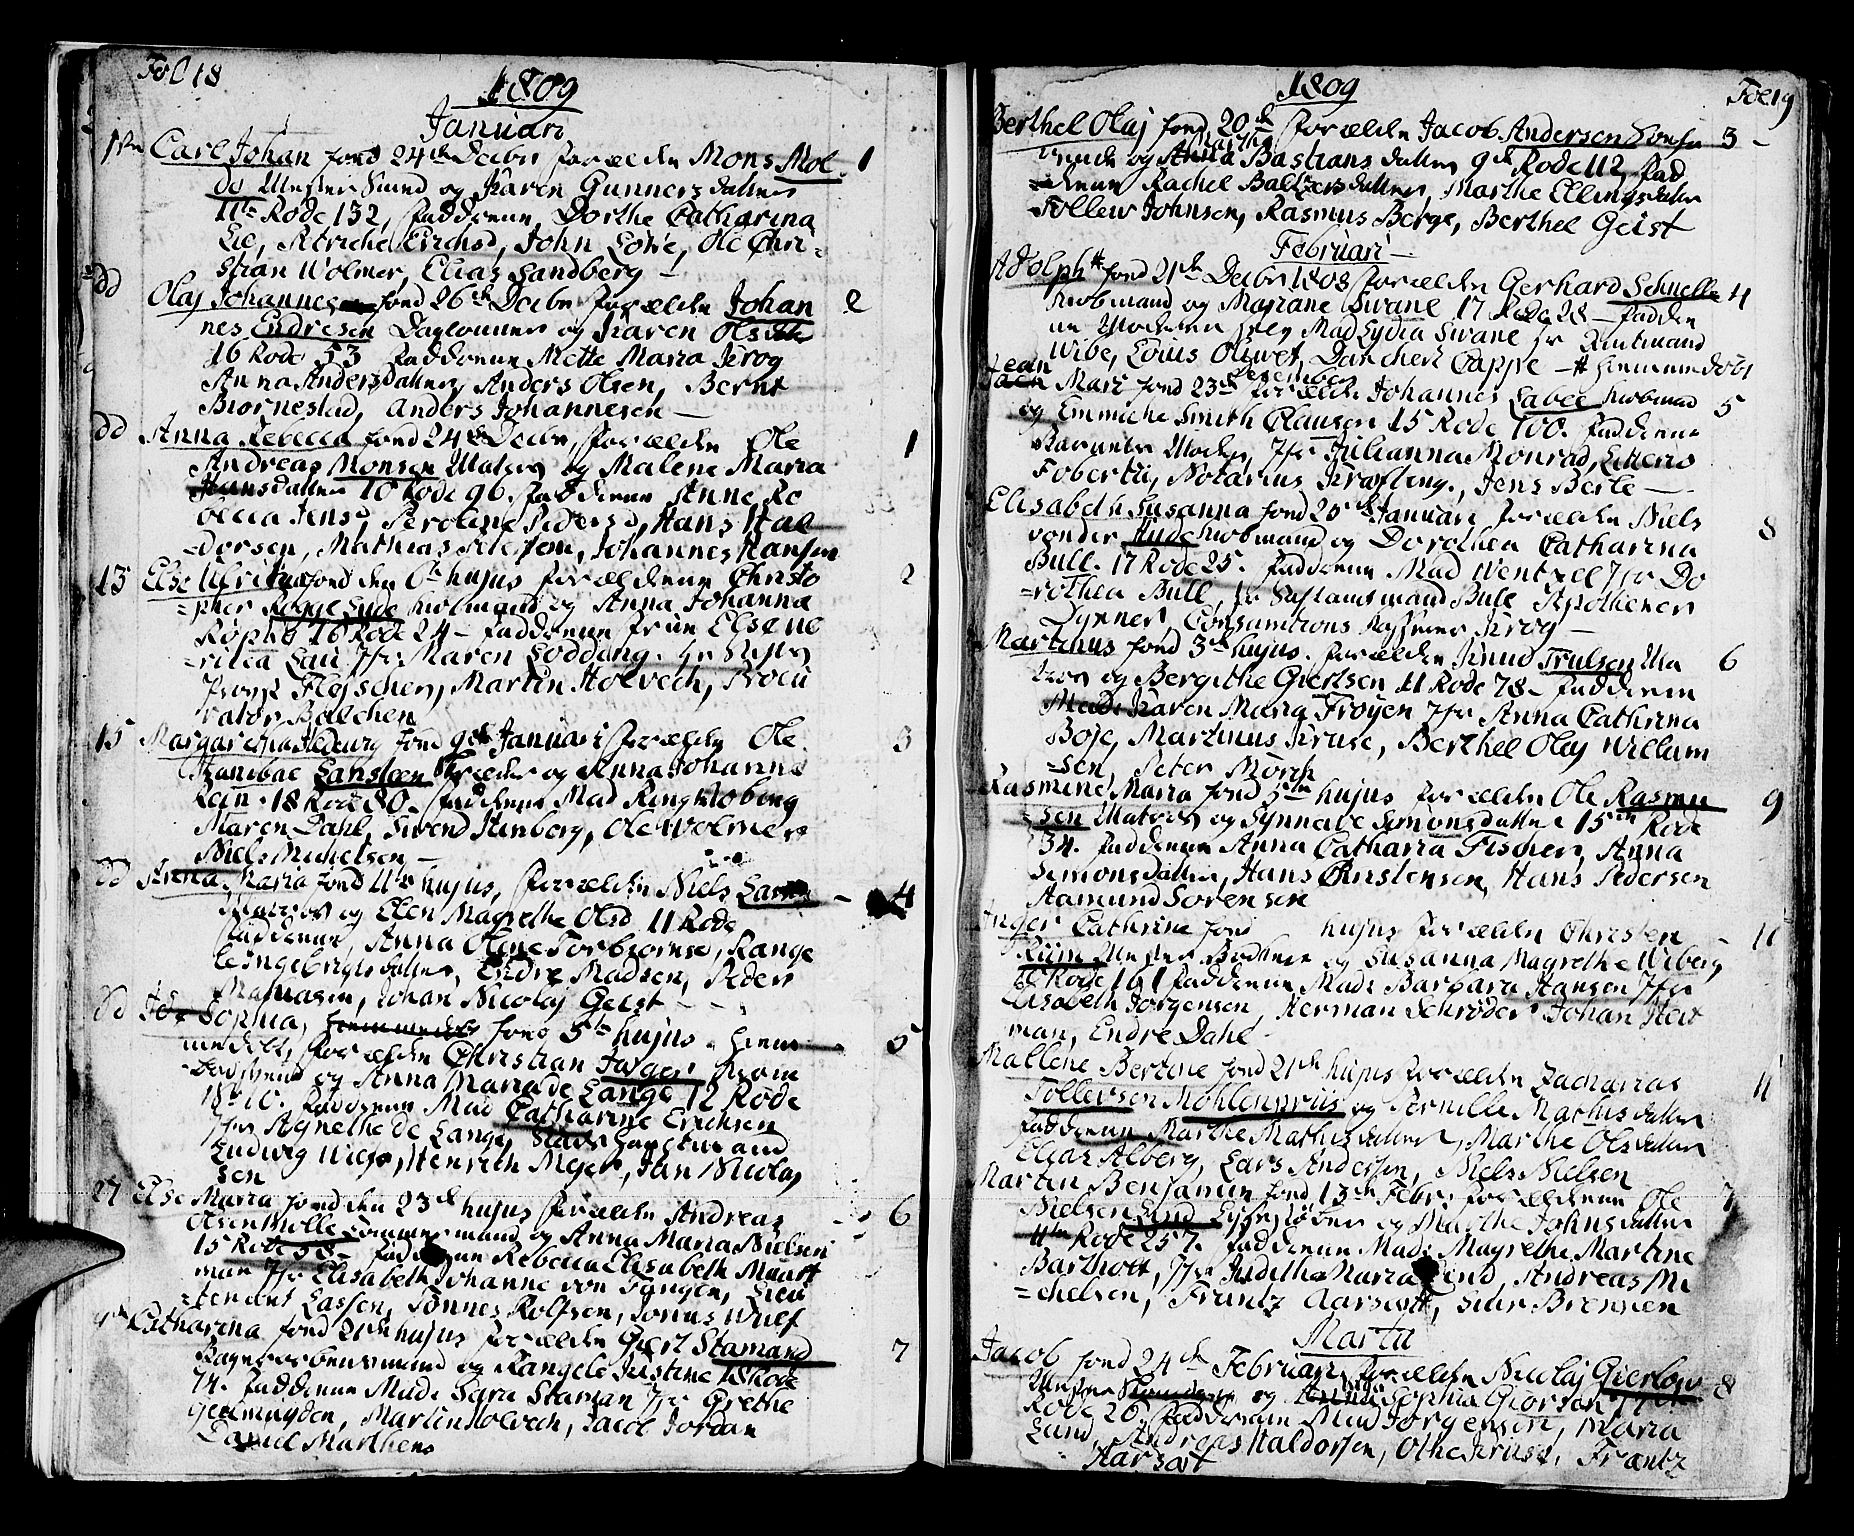 Fol 18
1809
Januari
1ste Carl Johan fond 24de Decbr forældre Mons Mol 1
de Mester Smed og Karen Gunnersdatter
11te Rode 132, fadderne Dorthe Catharina
Lie, Petriche Erichsd, John Lowe, Ole Chri-
stian Wolmer, Elias Sandberg
dd Olaj Johannes fond 26de Decbr forældre Johan 2
nes Endresen Daglønner og Karen Olsdtr
16 Rode 53 fadderne Mette Maria Krog
Anna Andersdatter, Anders Olsen, Bernt
Biornestad, Anders Johannesen
dd Anna Rebecca fond 24de Decbr, forældre Ole 1
Andreas Monsen Matros og Malene Maria
Hansdatter 10 Rode 96. fadderne Anne Re
becca Jensd, Peroline Pedersd, Hans Hal
-dorsen, Mathias Petersen, Johannes Hansen
13 Else Ulrica fond den 6te hujus forældrene Christo 2
-pher Kiøbmand og Anna Johanna
16 Rode 24 - fadderne frue Elsene
-ricca Lau Jfr Maren Lodding. Hr
Provst Flejscher, Martin Holvech, Procu
rator Balchen
15 Margaretha Hedevig fond 9de Januari forældre Ole 3
Hanibal Lansteen og Anna Johanne
Rein. 18 Rode 80. fadderne Mad Ringkiobing
Maren Dahl, Sivend Stenberg, Ole Wolmer
Niels Michelsen
dd Anna Maria fond 11te hujus, forældre Niels Larsen 4
Matros og Elen Magrethe Olsd 11 Rode
fadderne, Anna Oline Torbiornsd, Range
le Ingebrigtsdatter, Endre Madsen, Peder
Mathiasen, Johan Nicolaj Geist
dd Ida Sophia, fond 5te hujus hiem 5
medøbt, forældre Christian Jæger
og Anna Maria de Lange 12 Rode
fadderne Mad Catharine Erichsen
Jfr Agnethe de Lange,
Ludwig Wiese, Henrich Mejer, Jan Nicolaj
sen
27 Else Maria fond den 23de hujus forældre Andreas 6
Olsen Molle Tommermand og Anna Maria Nielsen
15 Rode 58 - fadderne Rebecca Elisabeth
man Jfr Elisabeth Johanne von Tangen, Lieu
-tenant Lassen, Tønnes Rolfsen, Jonas Wulf
Catharina fond 21de hujus forældre Giert Stamand 7
og Rangele Justine 18 Rode
74. fadderne Mad: Sara Staman Jfr Grethe
Geelmuyden, Martin Holvech, Jacob Jordan
Daniel Marthens
1809
Fol 19
Berthel Olaj fond 20de forældre Jacob Andersen 3
og Martha Anna Bastiansdatter 9de Rode 112, fad
-derne Rachel Baltzersdatter, Marthe Ellingsdatter
Tollew Johnsen, Rasmus Berge, Berthel Geist
Februari
Adolph # fond 21de Decbr 1808 forældre Gerhard Schnelle 4
Kiobmand og Mariane Swane 17 Rode 28 - fadder
ne Moderen selv, Mad Lydia Swane Hr Amtmand
Wibe, Louis Oliwet, Danchert Cappe - # Hiemmedøbt
Jean Mari fond 23de December forældre Johannes Labee Kiobmand 5
og Emmiche Smith Clausen 15 Rode 100. fadderne
Barnets Moder, Jfr Julianna Monrad,
Notarius Krafting, Jens Berle
Elisabeth Susanna fond 20de Januari forældre Niels 8
vonder Hude Kiobmand og Dorothea Catharina
Bull. 17 Rode 25. fadderne Mad Wentzell Jfr Do
-rothea Bull, Hr Bull Apotheker
Dyener, Consumtions Casserer Krog
Martinus fond 3de hujus. forældre Knud Trulsen Ma 6
tros og Bergithe Giertsen 11 Rode 78 - fadderne
Mad: Karen Maria Froyen Jfr Anna Cathrina
Boje, Martinus Kruse, Berthel Olaj Willum
-sen, Peter Morch
Rasmine Maria fond 5te hujus forældre Ole Rasmu 9
-sen Matros og Synneve Simonsdatter 15de Rode
34. fadderne Anna Catharia Fischer, Anna
Simonsdatter, Hans Christensen, Hans Pedersen
Aamund Sorensen
Inger Cathrine fond hujus forældre Christen 10
Riim Mester Bødker og Susanna Magrethe Wiberg
10 Rode 161 fadderne Mad: Barbara Hansen Jfr
Elisabeth Jorgensen, Herman Schrøder Johan Hew
man, Endre Dahl
Mallene Bertine fond 21de hujus forældre Zacharias 11
Tollevsen Mohlenpriis og Pernille Marthisdatter
fadderne Marthe Mathisdatter, Marthe Olsdatter
Elias Alberg, Lars Andersen, Niels Nielsen
Martin Benjamin fond 13de Febr: forældrene Ole 7
Nielsen Lind og Marthe Johnsdatter
11te Rode 257. fadderne Mad: Magrethe Martine
Barthott, Jfr Judithe Maria Lind, Andreas Mi
-chelsen, Frantz Aarsvoth, Siur Brennen
Martii
Jacob fond 24de Februari forældre Nicolaj Gierlow 8
Mester og Sophia Giørsen 17de
Rode 20. fadderne Mad Jorgensen, Maria
Lund, Andreas Haldorsen, Othe Kruse, Frantz
Aarsvot